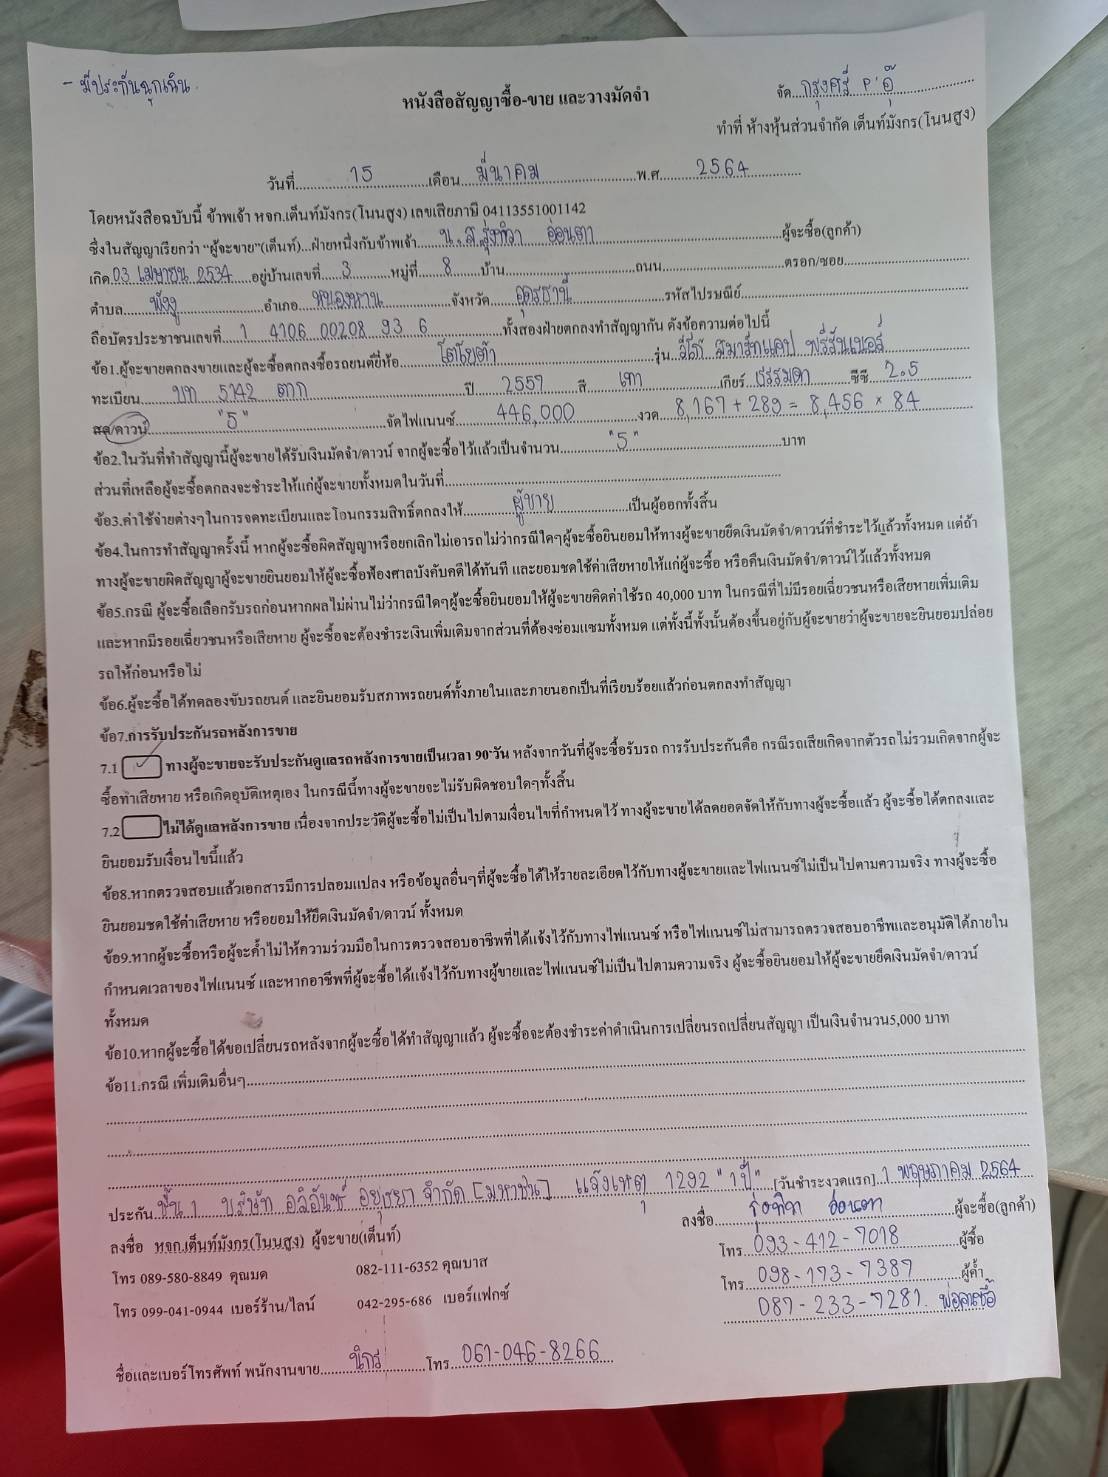 - มีประกันฉุกเฉิน
หนังสือสัญญาซื้อ-ขาย และวางมัดจำ
จัด กรุงศรี P'อุ๊
ทำที่ ห้างหุ้นส่วนจำกัด เต็นท์มังกร(โนนสูง)
วันที่ 15 เดือน มีนาคม พ.ศ. 2564
โดยหนังสือฉบับนี้ ข้าพเจ้า หจก.เต็นท์มังกร(โนนสูง) เลขเสียภาษี 04113551001142
ซึ่งในสัญญาเรียกว่า "ผู้จะขาย"(เต็นท์)...ฝ่ายหนึ่งกับข้าพเจ้า น.ส.รุ่งทิวา อ่อนตา ผู้จะซื้อ(ลูกค้า)
เกิด 03 เมษายน 2534 อยู่บ้านเลขที่ 3 หมู่ที่ 8 บ้าน ถนน ตรอก/ซอย
ตำบล พังงู อำเภอ หนองหาน จังหวัด อุดรธานี รหัสไปรษณีย์
ถือบัตรประชาชนเลขที่ 1 4106 00208 93 6 ทั้งสองฝ่ายตกลงทำสัญญากัน ดังข้อความต่อไปนี้
ข้อ1.ผู้จะขายตกลงขายและผู้จะซื้อตกลงซื้อรถยนต์ยี่ห้อ โตโยต้า รุ่น วีโก้ สมาร์ทแคป พรีรันเนอร์
ทะเบียน บท 5742 ตาก ปี 2557 สี เทา เกียร์ ธรรมดา ซีซี 2.5
สด/ดาวน์ "5" จัดไฟแนนซ์ 446,000 งวด 8,167 + 289 = 8,456 × 84
ข้อ2.ในวันที่ทำสัญญานี้ผู้จะขายได้รับเงินมัดจำ/ดาวน์ จากผู้จะซื้อไว้แล้วเป็นจำนวน "5" บาท
ส่วนที่เหลือผู้จะซื้อตกลงจะชำระให้แก่ผู้จะขายทั้งหมดในวันที่
ข้อ3.ค่าใช้จ่ายต่างๆในการจดทะเบียนและโอนกรรมสิทธิ์ตกลงให้ ผู้ขาย เป็นผู้ออกทั้งสิ้น
ข้อ4.ในการทำสัญญาครั้งนี้ หากผู้จะซื้อผิดสัญญาหรือยกเลิกไม่เอารถไม่ว่ากรณีใดๆผู้จะซื้อยินยอมให้ทางผู้จะขายยึดเงินมัดจำ/ดาวน์ที่ชำระไว้แล้วทั้งหมด แต่ถ้า
ทางผู้จะขายผิดสัญญาผู้จะขายยินยอมให้ผู้จะซื้อฟ้องศาลบังคับคดีได้ทันที และยอมชดใช้ค่าเสียหายให้แก่ผู้จะซื้อ หรือคืนเงินมัดจำ/ดาวน์ไว้แล้วทั้งหมด
ข้อ5.กรณี ผู้จะซื้อเลือกรับรถก่อนหากผลไม่ผ่านไม่ว่ากรณีใดๆผู้จะซื้อยินยอมให้ผู้จะขายคิดค่าใช้รถ 40,000 บาท ในกรณีที่ไม่มีรอยเฉี่ยวชนหรือเสียหายเพิ่มเติม
และหากมีรอยเฉี่ยวชนหรือเสียหาย ผู้จะซื้อจะต้องชำระเงินเพิ่มเติมจากส่วนที่ต้องซ่อมแซมทั้งหมด แต่ทั้งนี้ทั้งนั้นต้องขึ้นอยู่กับผู้จะขายว่าผู้จะขายจะยินยอมปล่อย
รถให้ก่อนหรือไม่
ข้อ6.ผู้จะซื้อได้ทดลองขับรถยนต์ และยินยอมรับสภาพรถยนต์ทั้งภายในและภายนอกเป็นที่เรียบร้อยแล้วก่อนตกลงทำสัญญา
ข้อ7.การรับประกันรถหลังการขาย
7.1 ✓ ทางผู้จะขายจะรับประกันดูแลรถหลังการขายเป็นเวลา 90 วัน หลังจากวันที่ผู้จะซื้อรับรถ การรับประกันคือ กรณีรถเสียเกิดจากตัวรถไม่รวมเกิดจากผู้จะ
ซื้อทำเสียหาย หรือเกิดอุบัติเหตุเอง ในกรณีนี้ทางผู้จะขายจะไม่รับผิดชอบใดๆทั้งสิ้น
7.2 ไม่ได้ดูแลหลังการขาย เนื่องจากประวัติผู้จะซื้อไม่เป็นไปตามเงื่อนไขที่กำหนดไว้ ทางผู้จะขายได้ลดยอดจัดให้กับทางผู้จะซื้อแล้ว ผู้จะซื้อได้ตกลงและ
ยินยอมรับเงื่อนไขนี้แล้ว
ข้อ8.หากตรวจสอบแล้วเอกสารมีการปลอมแปลง หรือข้อมูลอื่นๆที่ผู้จะซื้อได้ให้รายละเอียดไว้กับทางผู้จะขายและไฟแนนซ์ไม่เป็นไปตามความจริง ทางผู้จะซื้อ
ยินยอมชดใช้ค่าเสียหาย หรือยอมให้ยึดเงินมัดจำ/ดาวน์ ทั้งหมด
ข้อ9.หากผู้จะซื้อหรือผู้จะค้ำไม่ให้ความร่วมมือในการตรวจสอบอาชีพที่ได้แจ้งไว้กับทางไฟแนนซ์ หรือไฟแนนซ์ไม่สามารถตรวจสอบอาชีพและอนุมัติได้ภายใน
กำหนดเวลาของไฟแนนซ์ และหากอาชีพที่ผู้จะซื้อได้แจ้งไว้กับทางผู้ขายและไฟแนนซ์ไม่เป็นไปตามความจริง ผู้จะซื้อยินยอมให้ผู้จะขายยึดเงินมัดจำ/ดาวน์
ทั้งหมด
ข้อ10.หากผู้จะซื้อได้ขอเปลี่ยนรถหลังจากผู้จะซื้อได้ทำสัญญาแล้ว ผู้จะซื้อจะต้องชำระค่าดำเนินการเปลี่ยนรถเปลี่ยนสัญญา เป็นเงินจำนวน5,000 บาท
ข้อ11.กรณี เพิ่มเติมอื่นๆ
ประกัน ชั้น 1 บริษัท อลิอันซ์ อยุธยา จำกัด [มหาชน] แจ้งเหตุ 1292 "1ปี" [วันชำระงวดแรก] 1 พฤษภาคม 2564
ลงชื่อ หจก.เต็นท์มังกร(โนนสูง) ผู้จะขาย(เต็นท์) ลงชื่อ รุ่งทิวา อ่อนตา ผู้จะซื้อ(ลูกค้า)
โทร 089-580-8849 คุณมด 082-111-6352 คุณบาส โทร 093-412-7018 ผู้ซื้อ
โทร 099-041-0944 เบอร์ร้าน/ไลน์ 042-295-686 เบอร์แฟกซ์ โทร 098-173-7387 ผู้ค้ำ
087-233-7281 พ่อคนซื้อ
ชื่อและเบอร์โทรศัพท์ พนักงานขาย นิกร โทร 061-046-8266